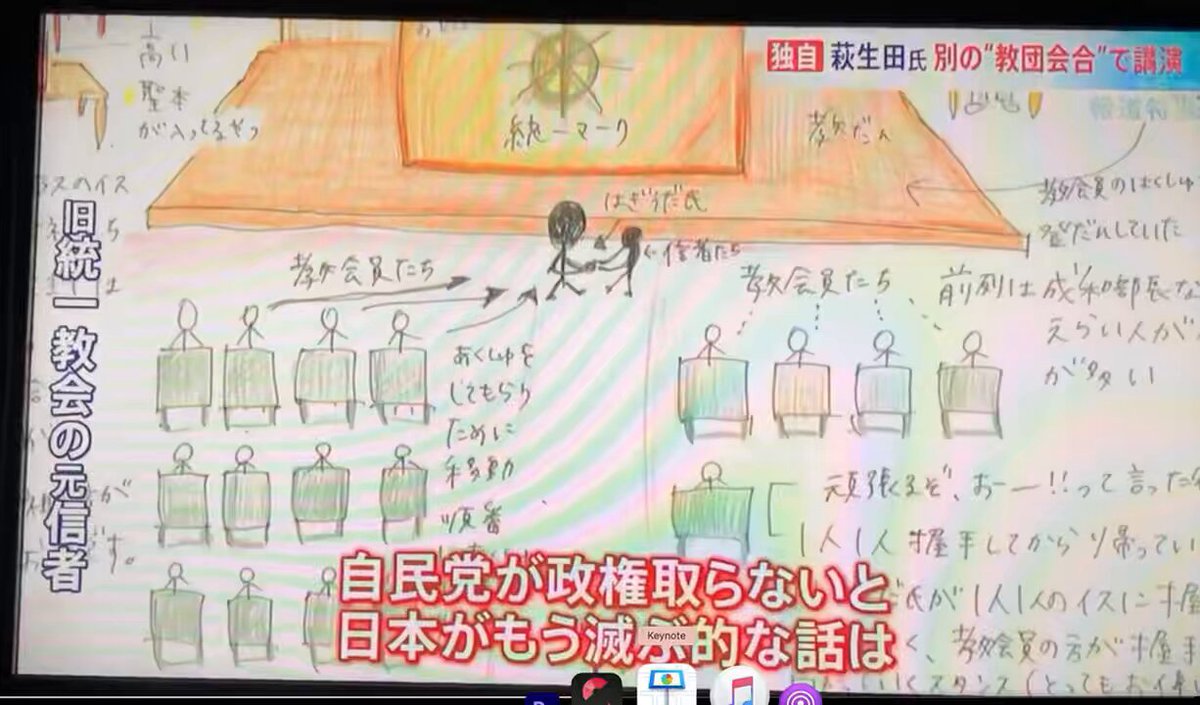 独自 萩生田氏 別の“教団会合”で講演
旧統一教会の元信者
高い
聖本
が入ってるぞっ
統一マーク
教だん
はぎうだ氏
信者たち
教会員たち
教会員たち
あくしゅを
してもらう
ために
移動
順番
教会員のはくしゅ
登だんしていた
前列は成和部長な
えらい人が
が多い
頑張るぞ、おー!!って言った
1人1人握手してから
氏が1人1人のイスに握
く、教会員の方が握手
スタンス(とっても
自民党が政権取らないと
日本がもう滅ぶ的な話は
Keynote